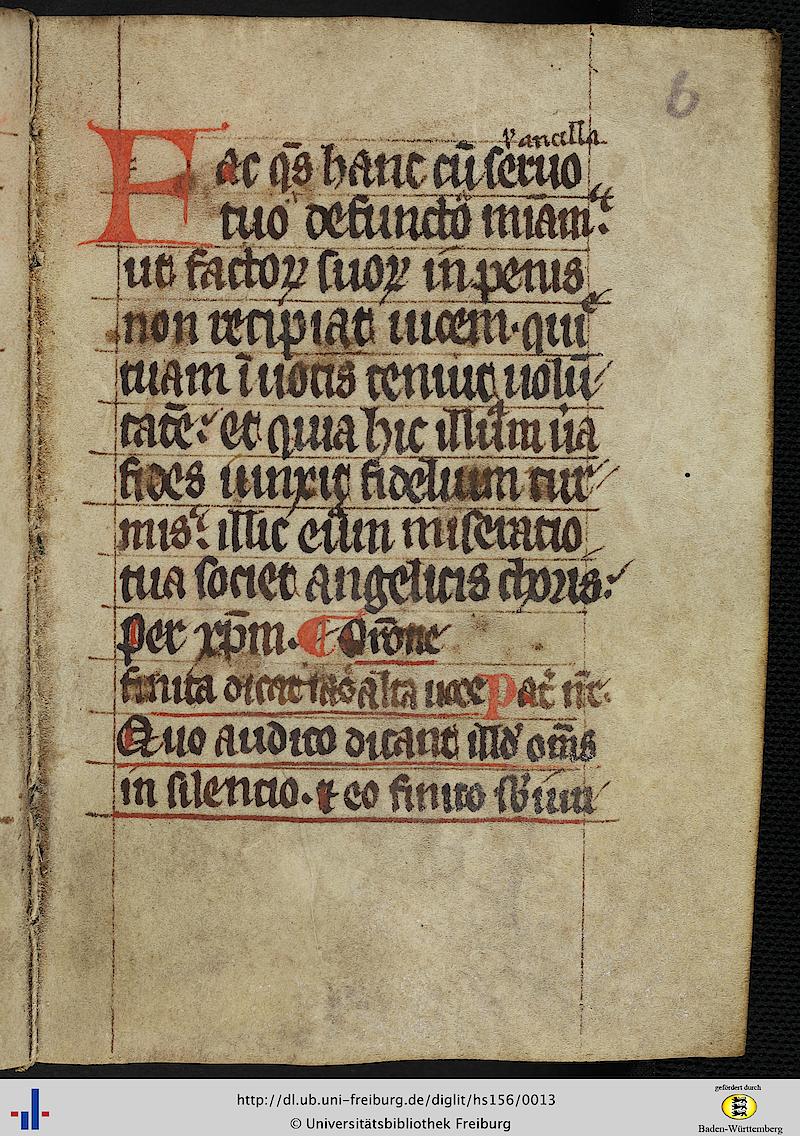 6
ł ancilla
Fac q̄s hanc cū seruo
tuo defuncto mīam.
ut factoꝝ suoꝝ in penis
non recipiat uicem. qui
tuam ī uotis tenuit uolū
tatē: et quia hic illum ūa
fides uinxit fidelium tur
mis: illic eum miseratio
tua societ angelicis choris:
Per xp̄m. ¶ Or̄one
finita dicat sac̄ alta uoce Pat̄ nr̄.
Quo audito dicant illd̄ om̄s
in silencio. ⁊ eo finito sb̄iun
http://dl.ub.uni-freiburg.de/diglit/hs156/0013
© Universitätsbibliothek Freiburg
gefördert durch
Baden-Württemberg